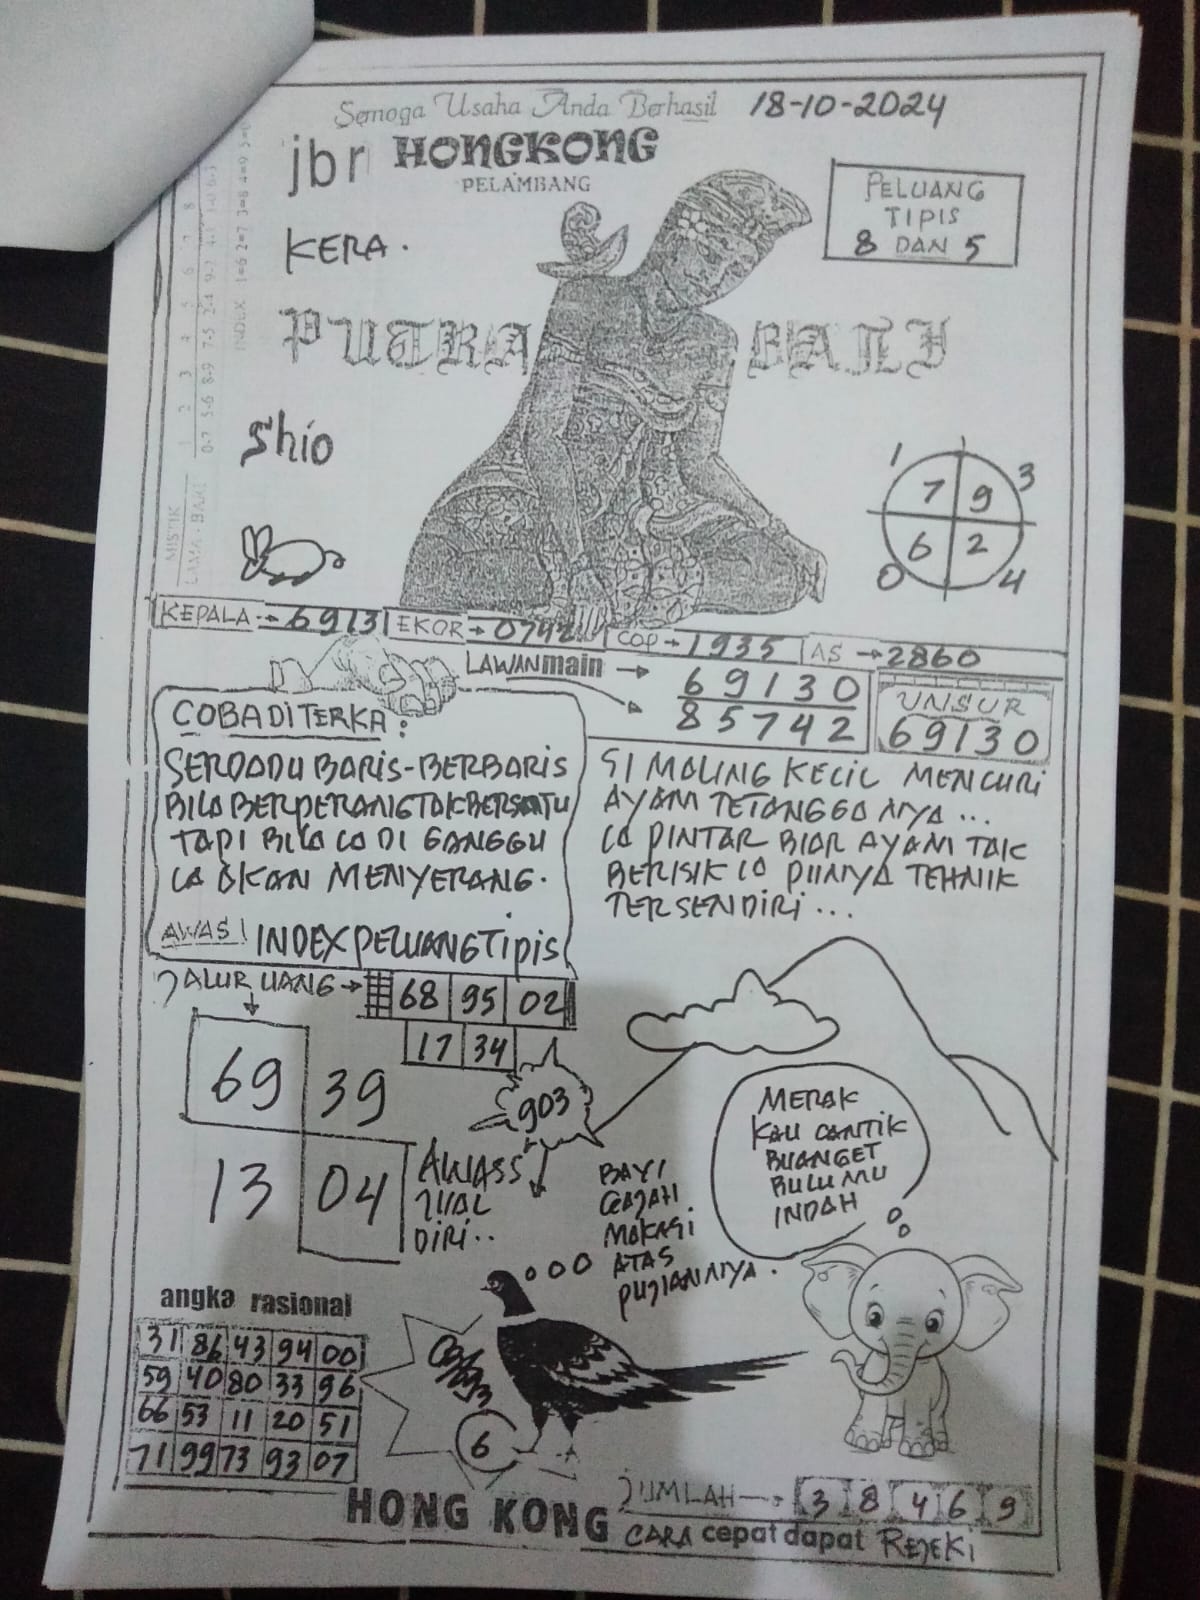 Semoga Usaha Anda Berhasil 18-10-2024
jbr HONGKONG
PELAMBANG
PELUANG
TIPIS
8 DAN 5
KERA.
PUTRA BALI
Shio
1 3
7 9
6 2
0 4
MISTIK
LAMA - BARU
INDEX 1=6 2=7 3=8 4=9
KEPALA → 6913 EKOR → 0742 COP → 1935 AS → 2860
LAWAN main → 69130
85742
UNSUR
69130
COBA DITERKA :
SERDADU BARIS-BERBARIS
BILA BERPERANG TAK BERSATU
TAPI BILA IA DI GANGGU
IA AKAN MENYERANG.
AWAS! INDEX PELUANG TIPIS
SI MALING KECIL MENCURI
AYAM TETANGGANYA ...
IA PINTAR BIAR AYAM TAK
BERISIK IA PUNYA TEHNIK
TERSENDIRI ...
JALUR UANG → 68 95 02
17 34
69 39
13 04
903
AWASS
JUAL
DIRI..
BAYI
GAJAH
MAKASI
ATAS
PUJIANNYA.
MERAK
KAU CANTIK
BUANGET
BULUMU
INDAH
angka rasional
31 86 43 94 00
59 40 80 33 96
66 53 11 20 51
71 99 73 93 07
6
HONG KONG
JUMLAH → 3 8 4 6 9
CARA cepat dapat REJEKI